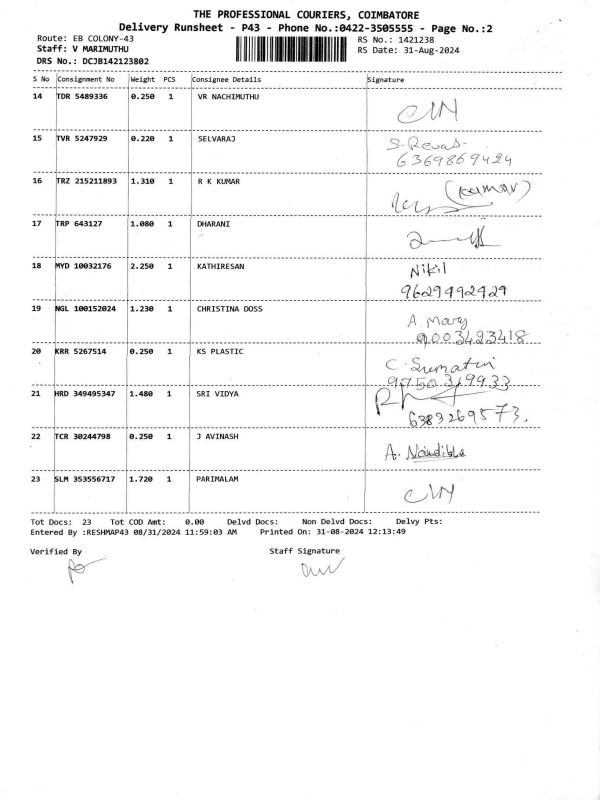 THE PROFESSIONAL COURIERS, COIMBATORE
Delivery Runsheet - P43 - Phone No.:0422-3505555 - Page No.:2
Route: EB COLONY-43 RS No.: 1421238
Staff: V MARIMUTHU RS Date: 31-Aug-2024
DRS No.: DCJB142123802
S No Consignment No Weight PCS Consignee Details Signature
14 TDR 5489336 0.250 1 VR NACHIMUTHU
15 TVR 5247929 0.220 1 SELVARAJ S. 
6369869424
16 TRZ 215211893 1.310 1 R K KUMAR (KUMAR)
17 TRP 643127 1.080 1 DHARANI
18 MYD 10032176 2.250 1 KATHIRESAN Nikil
9629492429
19 NGL 100152024 1.230 1 CHRISTINA DOSS A. Mary
9003423418
20 KRR 5267514 0.250 1 KS PLASTIC C. Sumathi
9750319933
21 HRD 349495347 1.480 1 SRI VIDYA
6383269573.
22 TCR 30244798 0.250 1 J AVINASH A.
23 SLM 353556717 1.720 1 PARIMALAM
Tot Docs: 23 Tot COD Amt: 0.00 Delvd Docs: Non Delvd Docs: Delvy Pts:
Entered By :RESHMAP43 08/31/2024 11:59:03 AM Printed On: 31-08-2024 12:13:49
Verified By Staff Signature